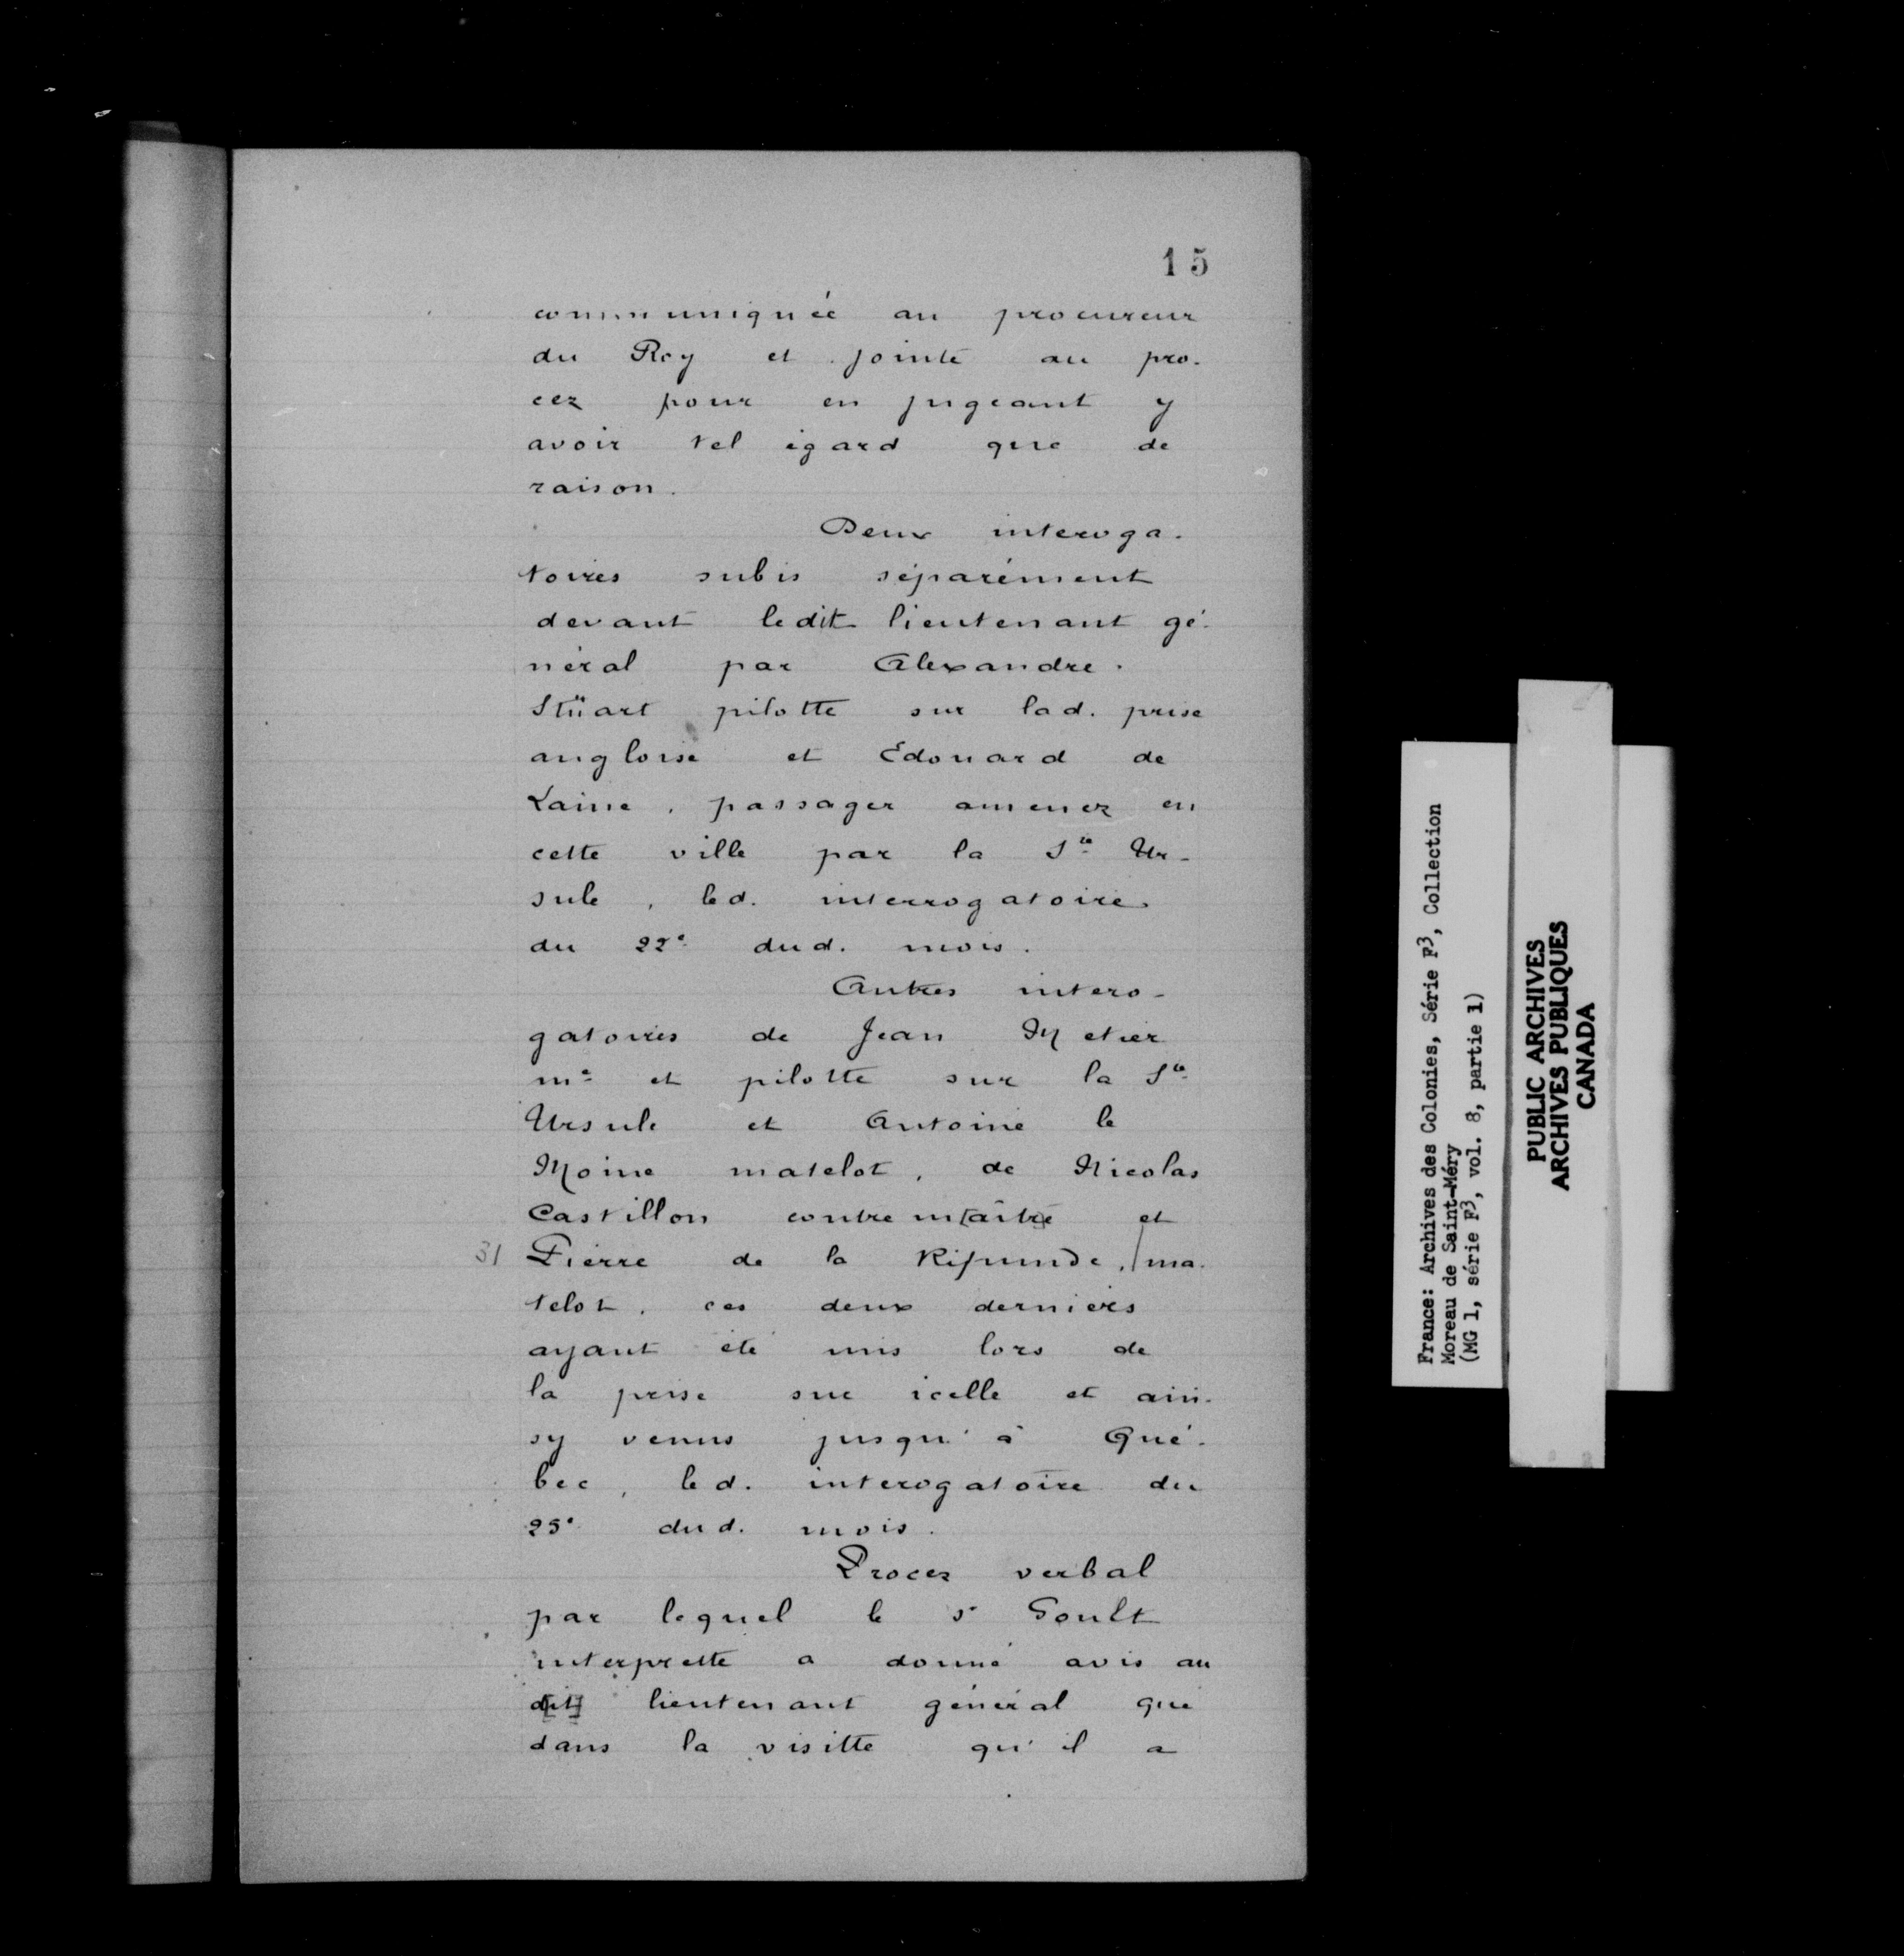 15
communiquée au procureur
du Roy et jointe au pro-
cez pour en jugeant y
avoir tel égard que de
raison.
Deux interoga-
toires subis séparément
devant ledit lieutenant gé-
néral par Alexandre
Stüart pilotte sur lad. prise
angloise et Edouard de
Laine, passager amenez en
cette ville par la Ste Ur-
sule, led. interrogatoire
du 22e dud. mois.
Autres intero-
gatoires de Jean Metier
me et pilotte sur la Ste
Ursule et Antoine le
Moine matelot, de Nicolas
Castillon contre m[aitre] et
31 Pierre de la , / ma-
telot, ces deux derniers
ayant été mis lors de
la prise sur icelle et ain-
sy venus jusqu'à Qué-
bec, led. interogatoire du
25e dud. mois.
Procez verbal
par lequel le sr Goult
interprette a donné avis au
d[it] lieutenant général que
dans la visitte qu'il a
France: Archives des Colonies, Série F3, Collection
Moreau de Saint-Méry
(MG 1, série F3, vol. 8, partie 1)
PUBLIC ARCHIVES
ARCHIVES PUBLIQUES
CANADA